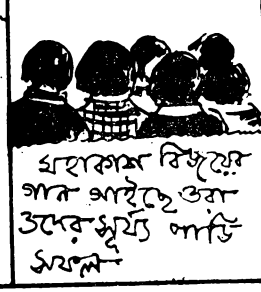 মহাকাশ বিজয়ের
গান গাইছে ওরা
ওদের সূর্য্য পাড়ি
সফল